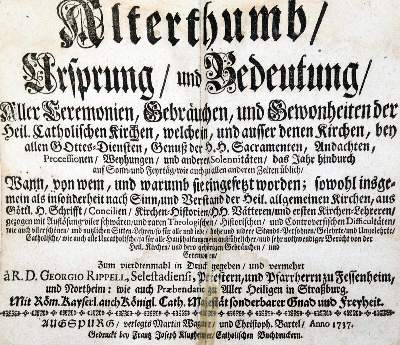 Alterthumb/
Ursprung/ und Bedeutung/
Aller Ceremonien, Gebräuchen, und Gewonheiten der
Heil. Catholischen Kirchen, welche in, und ausser denen Kirchen, bey
allen GOttes-Diensten, Genuß der H.H. Sacramenten, Andachten,
Processionen/ Weyhungen/ und anderen Solennitäten, das Jahr hindurch
auf Sonn- und Feyrtäg/ wie auch zu allen anderen Zeiten üblich/
Wann, von wem, und warumb sie eingesetzt worden; sowohl insge-
mein als insonderheit nach Sinn, und Verstand der Heil. allgemeinen Kirchen, aus
Göttl. H. Schrifft/ Concilien/ Kirchen-Historien/ HH. Vättern/ und ersten Kirchen-Lehreren/
und Theologischen/ Historischen/ und Controversischen Difficultäten/
wie auch und nutzlichen Sitten-Lehren/ so für alle und jede/ hohe und nidere Stands-Persohnen/ Gelehrte und Ungelehrte/
Catholische/ wie auch alle Uncatholische/ und sehr nothwendiger Bericht von der
Heil. Kirchen/ und dero gehörigen Gebräuchen/ und
Ceremonien/
Zum vierdtenmahl in Druck gegeben/ und vermehrt
à R. D. GEORGIO RIPPELL, Selestadiensi, Priestern, und Pfarrherrn zu Fessenheim,
und Northeim: wie auch Præbendario zu Aller Heiligen in Straßburg.
Mit Röm. Kayserl. auch Königl. Cath. Majestät sonderbarer Gnad und Freyheit.
AUGSPURG/ verlegts Martin und Christoph. Bartel/ Anno 1737.
Gedruckt bey Frantz Joseph Catholischen Buchdruckern.